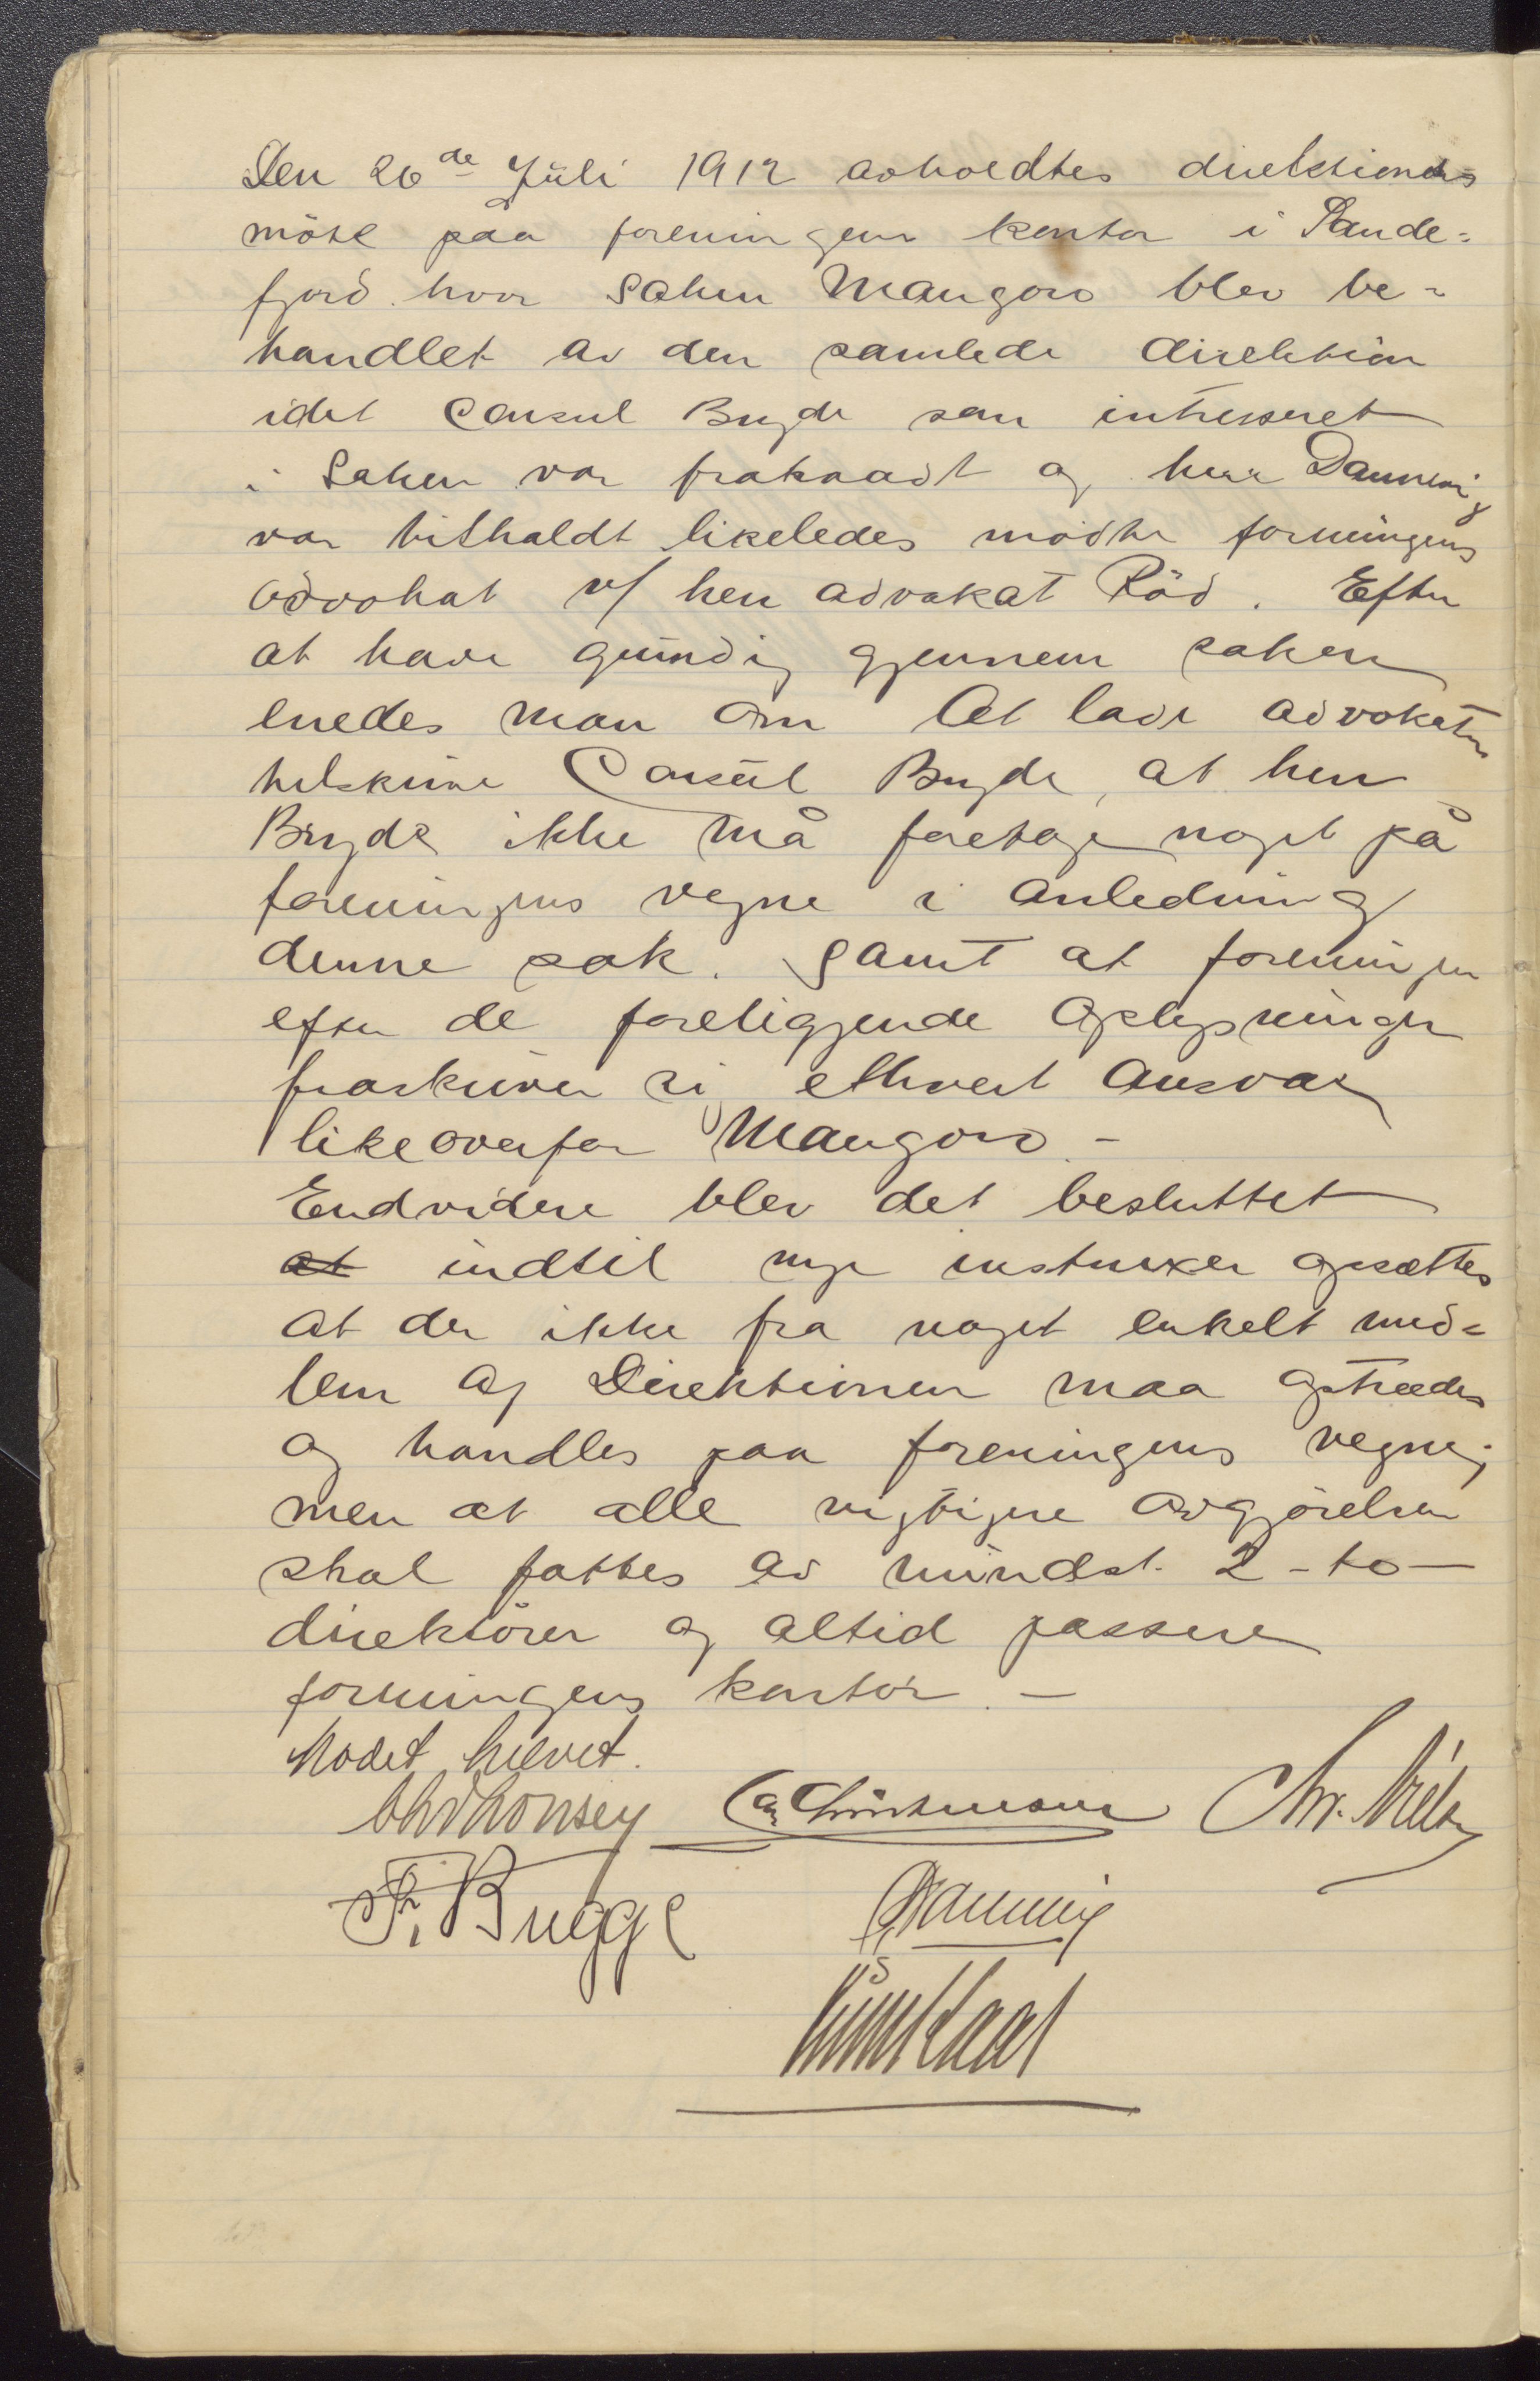 Den 26de Juli 1912 avholdtes direktions
möte paa foreningens kontor i Sande=
fjord hvor Saken Mangoro blev be=
handlet av den samlede direktion
idet Consul Bryde som intresseret
i Saken var fratraadt og herr Dannevig
var tilkaldt likeledes mödte foreningens
advokat v/ herr advokat Röd. Efter
at have grundig gjennem saken
enedes man om at lade advokaten
tilskrive Consul Bryde, at herr
Bryde ikke må foretage noget på
foreningens vegne i anledning
denne sak. Samt at foreningen
efter de foreliggende oplysninger
fraskriver sig ethvert ansvar
likeoverfor Mangoro –
Endvidere blev det besluttet
at indtil nye instruxer opsættes
at der ikke fra noget enkelt med=
lem af Direktionen maa optrædes
og handles paa foreningens vegne;
men at alle vigtigere avgjörelser
skal fattes av mindst 2 - to –
direktörer og altid passere
foreningens kontor. –
Mödet hævet.
Chr. Nielsen
F. Bugge
Dannevig